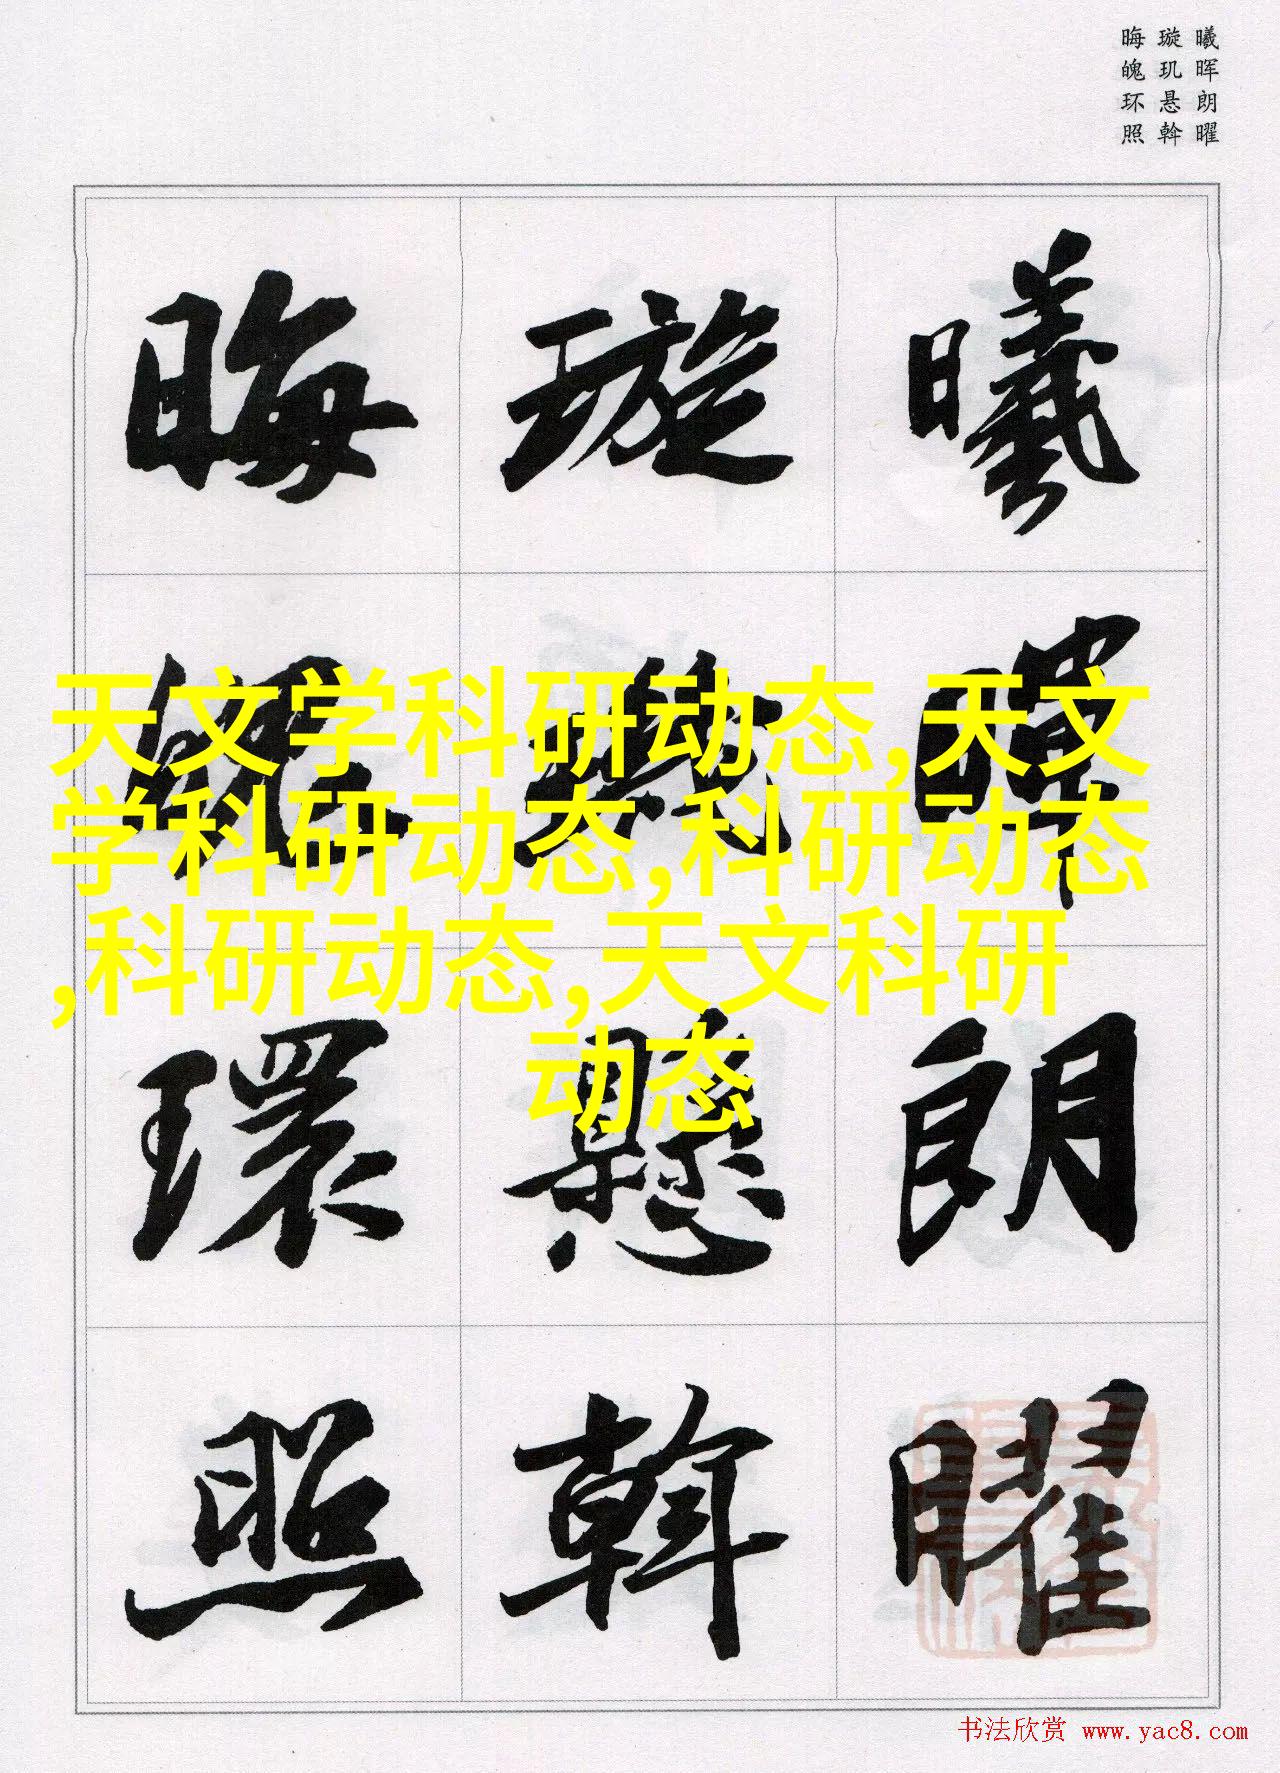 曦晖朗曜
璇玑悬斡
晦魄环照
曦
暉
朗
曜
璇
璣
懸
斡
晦
魄
環
照
天文学科研动态,天文
学科研动态,科研动态
,科研动态,天文科研
动态
书法欣赏 www.yac8.com